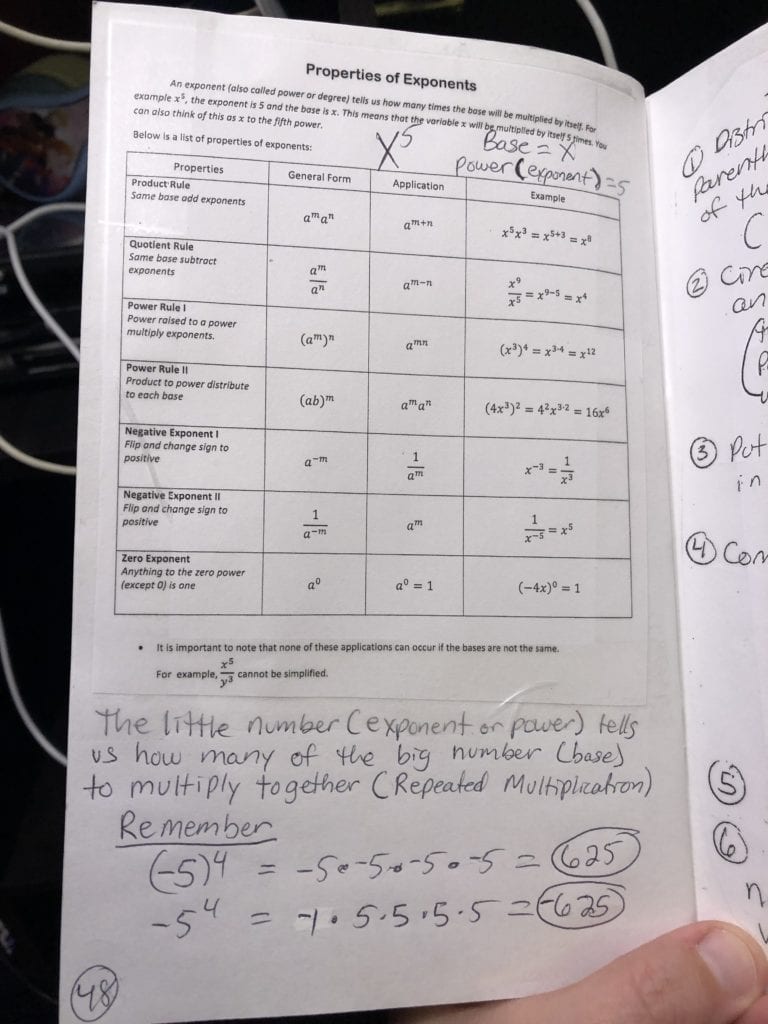 Properties of Exponents
An exponent (also called power or degree) tells us how many times the base will be multiplied by itself. For
example x⁵, the exponent is 5 and the base is x. This means that the variable x will be multiplied by itself 5 times. You
can also think of this as x to the fifth power.
Below is a list of properties of exponents:
X⁵
Base = X
Power (exponent) = 5
Properties General Form Application Example
Product Rule
Same base add exponents
aᵐaⁿ aᵐ⁺ⁿ x⁵x³ = x⁵⁺³ = x⁸
Quotient Rule
Same base subtract
exponents
aᵐ/aⁿ aᵐ⁻ⁿ x⁹/x⁵ = x⁹⁻⁵ = x⁴
Power Rule I
Power raised to a power
multiply exponents.
(aᵐ)ⁿ aᵐⁿ (x³)⁴ = x³·⁴ = x¹²
Power Rule II
Product to power distribute
to each base
(ab)ᵐ aᵐaⁿ (4x³)² = 4²x³·² = 16x⁶
Negative Exponent I
Flip and change sign to
positive
a⁻ᵐ 1/aᵐ x⁻³ = 1/x³
Negative Exponent II
Flip and change sign to
positive
1/a⁻ᵐ aᵐ 1/x⁻⁵ = x⁵
Zero Exponent
Anything to the zero power
(except 0) is one
a⁰ a⁰ = 1 (−4x)⁰ = 1
• It is important to note that none of these applications can occur if the bases are not the same.
For example, x⁵/y³ cannot be simplified.
The little number (exponent or power) tells
us how many of the big number (base)
to multiply together (Repeated Multiplication)
Remember
(-5)⁴ = -5•-5•-5•-5 = 625
-5⁴ = -1•5•5•5•5 = -625
48
① Distri
Parenth
of the
(
② Circ
an
③ Put
in
④ Com
⑤
⑥